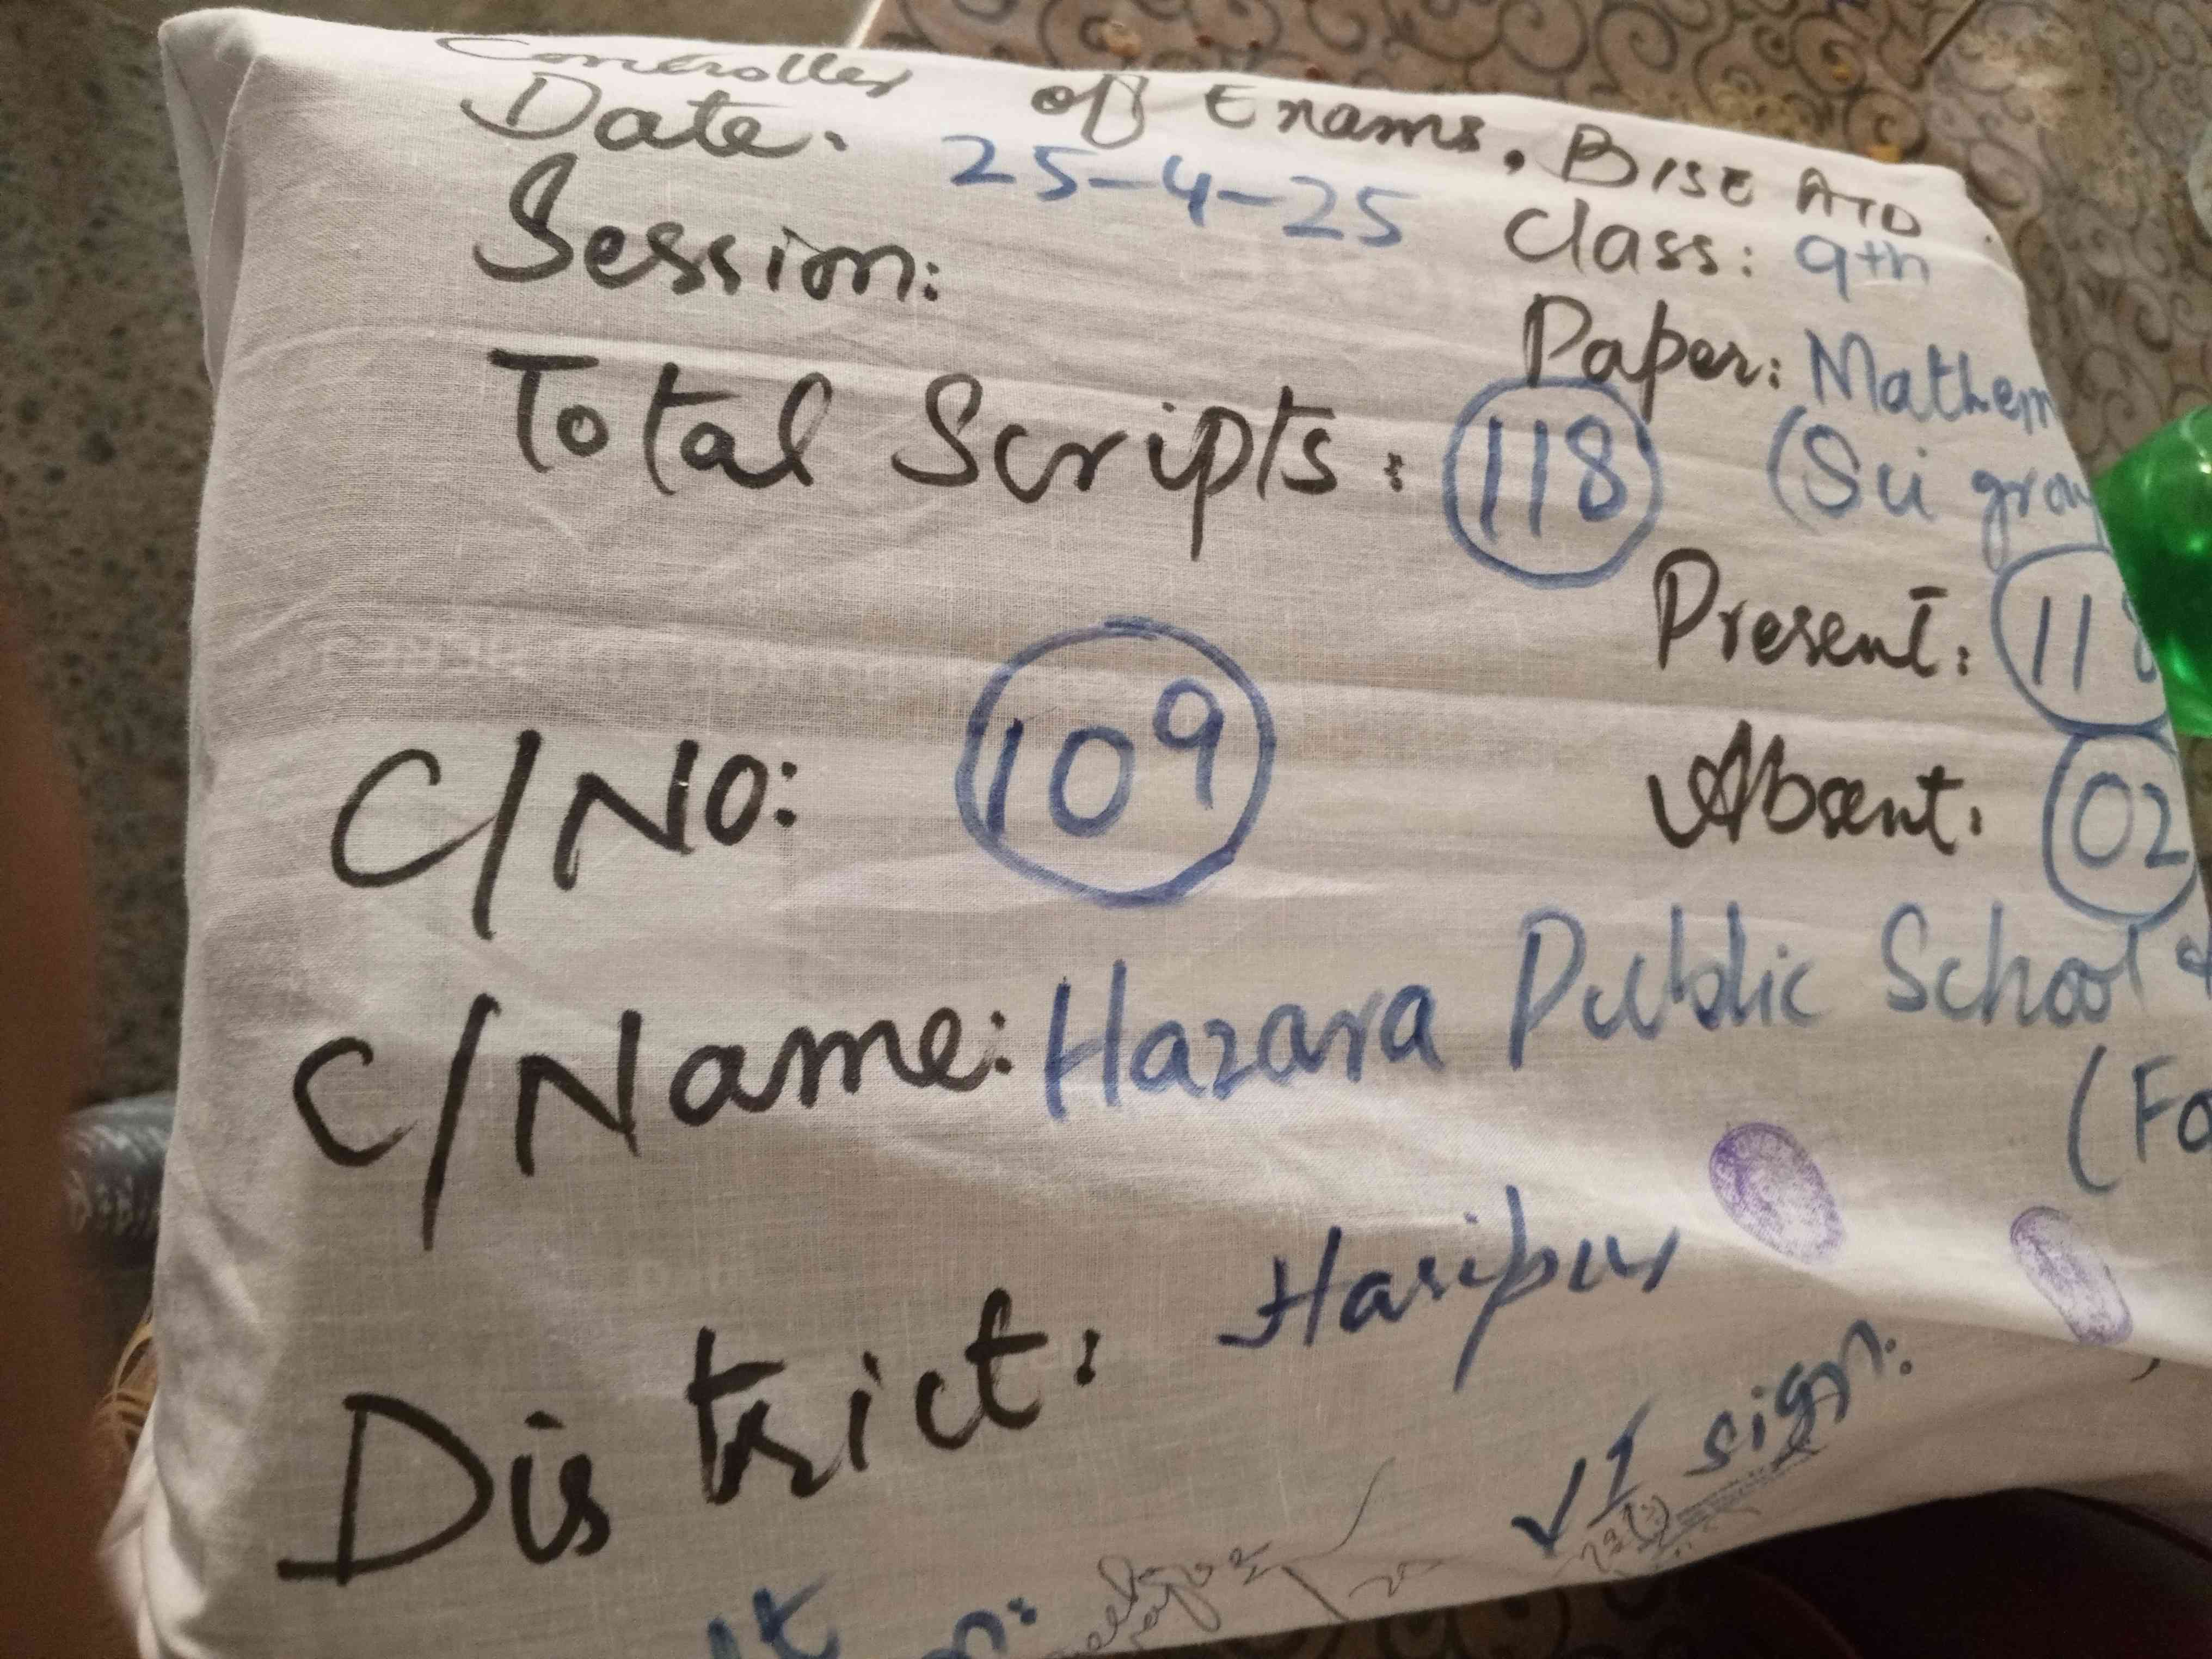 Controller of Exams, BISE ATD
Date. 25-4-25
Class: 9th
Session:
Paper: Mathem
(Sci grou
Total Scripts: 118
Present: 118
C/No: 109
Absent. 02
C/Name: Hazara Public School &
(Fo
District: Haripur
VI sign: